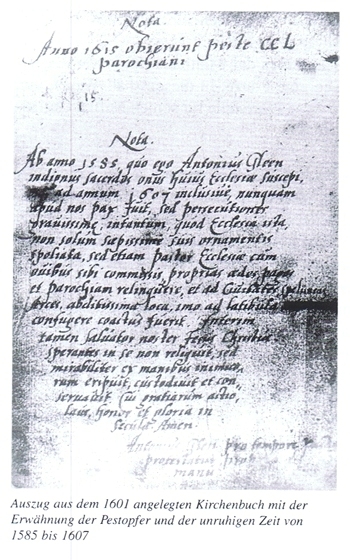 Nota.
Anno 1615 obierunt peste CCL
parochiani
15.
Nota.
Ab anno 1585, quo ego Antonius Gleen
indignus sacerdos onus huius Ecclesiæ suscepi,
ad annum 1607 inclusive, nunquam
apud nos pax fuit, sed persecutiones
gravissimæ, intantum, quod Ecclesia ista,
non solum sæpissime suis ornamentis
spoliata, sed etiam Pastor Ecclesiæ cum
ovibus sibi commissis proprias ædes
et parochiam relinquere, et ad Civitates speluncas
arces, abditissima loca, imo ad latibula
confugere coactus fuerit. Interim
tamen salvator noster Jesus Christus
sperantes in se non reliquit, sed
mirabiliter ex manibus inimico,
rum eripuit, custodivit et con,
servavit. Cui gratiarum actio,
laus, honor et gloria in
secula Amen.
Antonius Gleen pro tempore
manu
Auszug aus dem 1601 angelegten Kirchenbuch mit der
Erwähnung der Pestopfer und der unruhigen Zeit von
1585 bis 1607